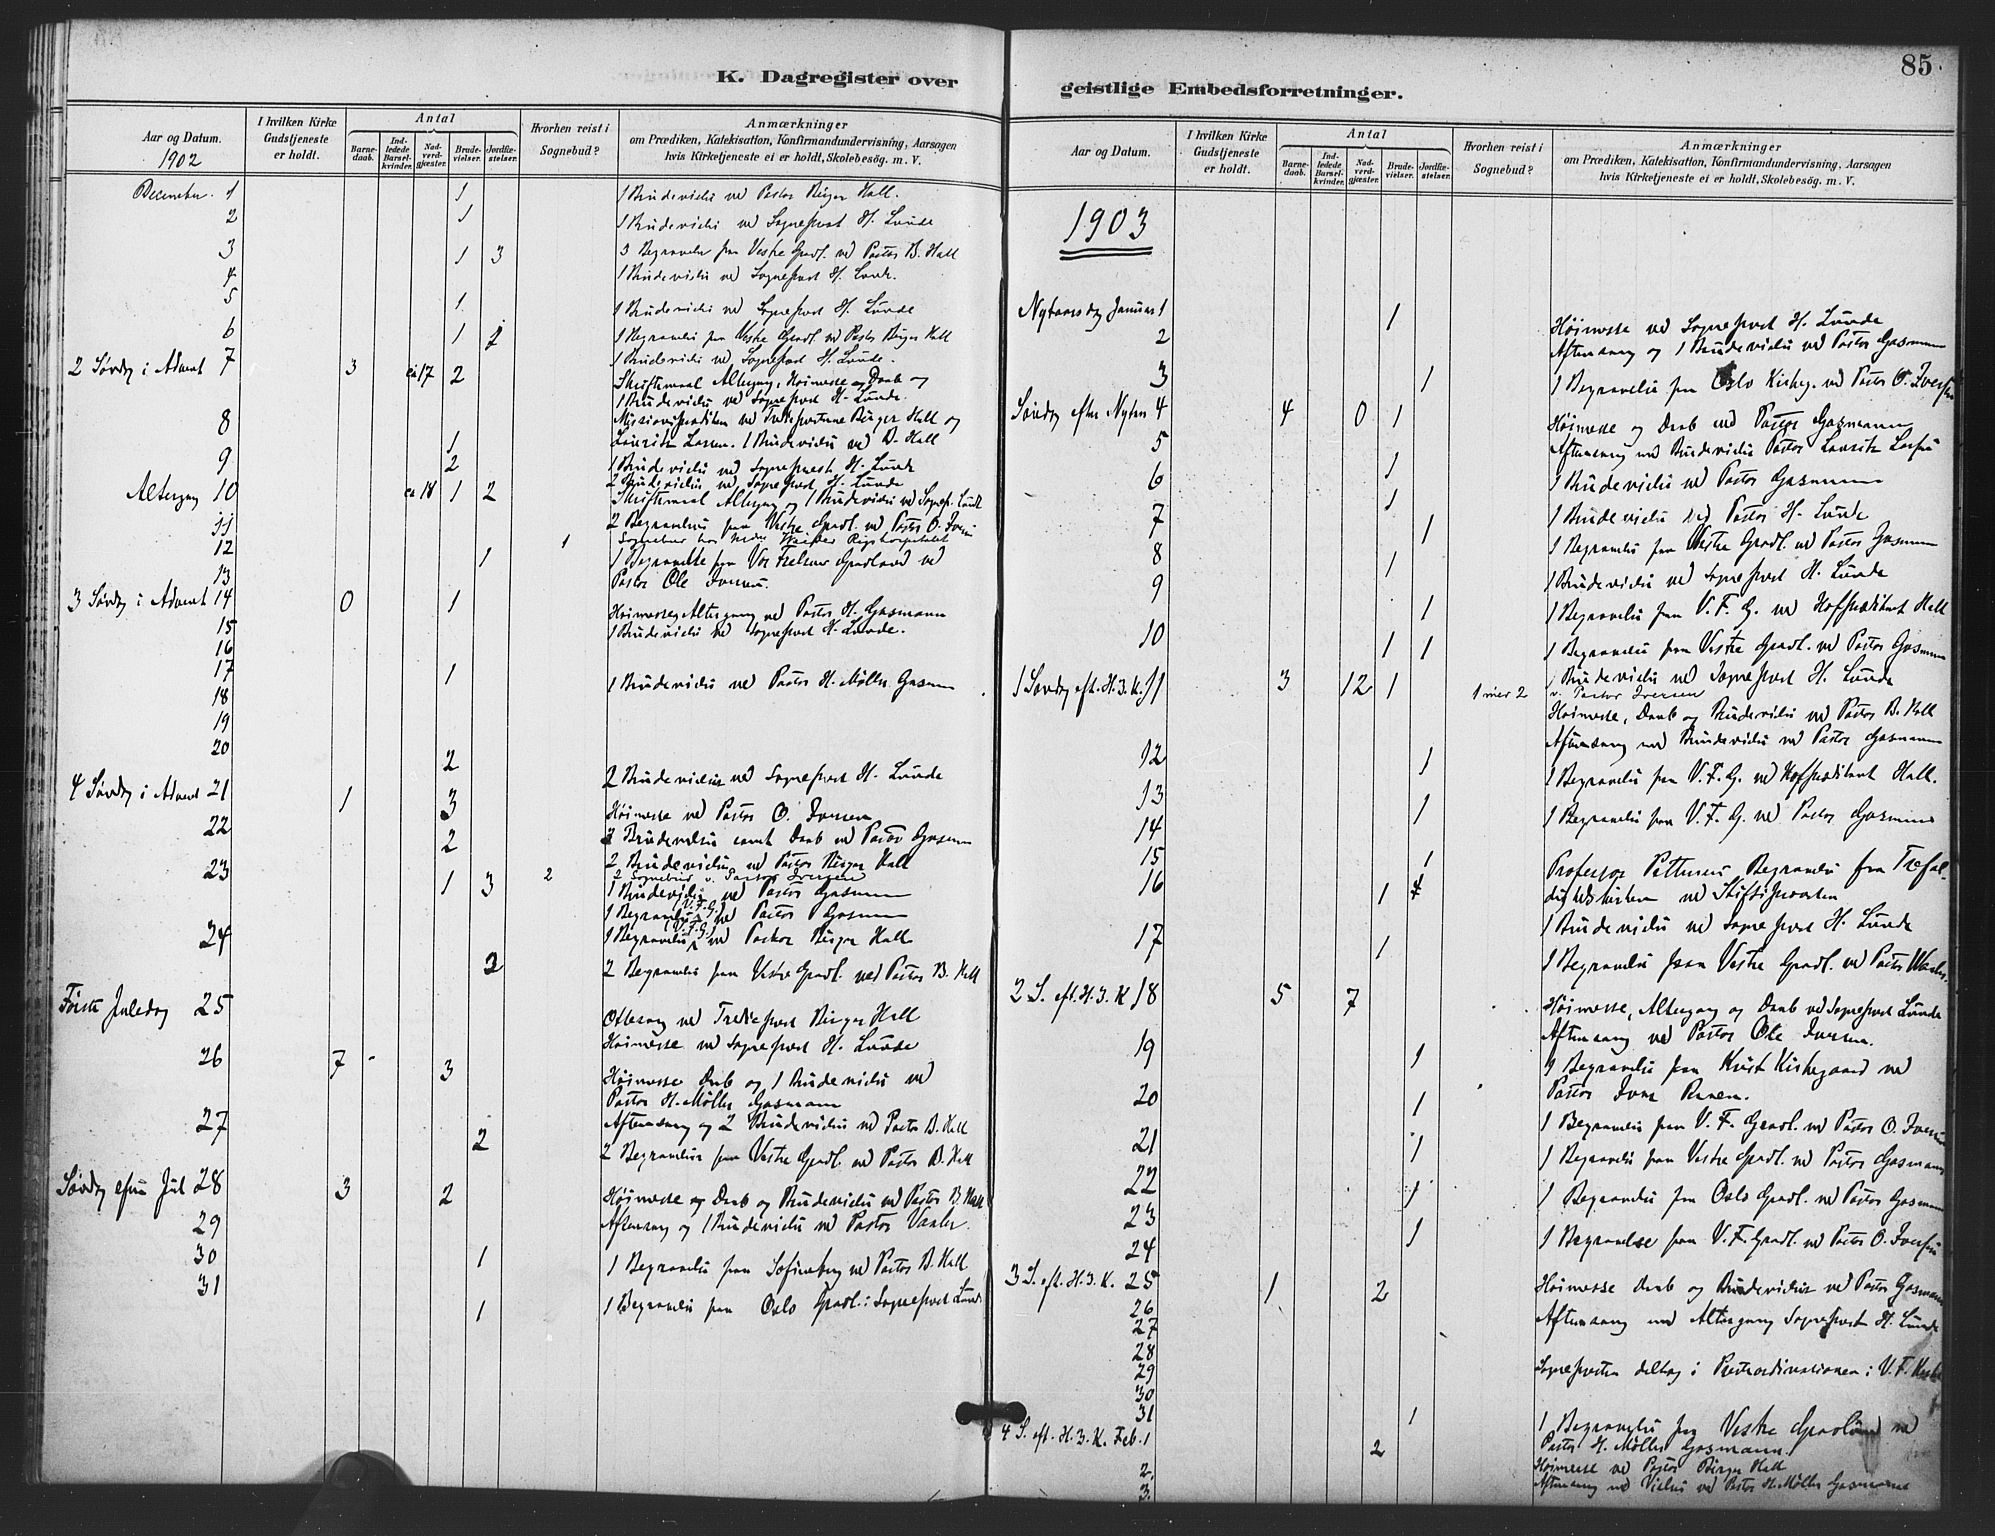 85.
K. Dagregister over
Aar og Datum.
1902
I hvilken Kirke Gudstjeneste er holdt.
Antal
Barnedaab.
Indledede Barselkvinder.
Nadverdgjæster.
Brudevielser.
Jordfæstelser.
Hvorhen reist i Sognebud?
Anmærkninger
om Prædiken, Katekisation, Konfirmandundervisning, Aarsagen
hvis Kirketjeneste ei er holdt, Skolebesøg. m. V.
December. 1 1 1 Brudevielse ved Pastor Birger Hall.
2 1 1 Brudevielse ved Sogneprest H. Lunde
3 1 3 3 Begravelser fra Vestre Gravl. ved Pastor B. Hall
4 1 Brudevielse ved Sogneprest H. Lunde.
5 1 1 Brudevielse ved Sogneprest H. Lunde
6 1 1 Begravelse fra Vestre Gravl. ved Pastor Birger Hall
2 Søndag i Advent 7 3 ca 17 2 1 Brudevielse ved Sogneprest H. Lunde.
Skriftemaal Altergang, Høimesse og Daab og
1 Brudevielse ved Sogneprest H. Lunde.
8 Missionsprædiken ved Birger Hall og
Lauritz Larsen. 1 Brudevielse ved B. Hall
1
9 2 1 Brudevielse ved Sogneprest H. Lunde
2 Brudevielse ved Sogneprest H. Lunde
Altergang 10 ca 18 1 2 Skriftemaal Altergang og 1 Brudevielse ved Sognepr. Lunde
11 2 Begravelser fra Vestre Gravl. ved Pastor O. Iversen
1 Sognebud hos Rigshospitalet
12 1 1 Begravelse fra Vor Frelsers Gravlund ved
13 Pastor Ole Iversen.
3 Søndag i Advent 14 0 1 Høimesse Altergang ved Pastor H. Gasmann
15 1 Brudevielse ved Sogneprest H. Lunde.
16
17 1 1 Brudevielse ved Pastor H. Møller Gasmann
18
19
20 2 2 Brudevielser ved Sogneprest H. Lunde
4 Søndag i Advent 21 1 3 Høimesse ved Pastor O. Iversen
3 Brudevielse samt Daab ved Pastor Gasmann
22 2 2 Brudevielser ved Pastor Birger Hall
2 2 Sognebud v. Pastor Iversen
23 1 3 1 Brudevielse ved Pastor Gasmann
1 Begravelse (V.F.G.) ved Pastor Gasmann
24 1 Begravelse (V.F.G.) ved Pastor Birger Hall
2 2 Begravelse fra Vestre Gravl. ved Pastor B. Hall
Første Juledag 25 Ottesang ved Tredieprest Birger Hall
Høimesse ved Sogneprest H. Lunde
26 7 3 Høimesse Daab og 1 Brudevielse ved
Pastor H. Møller Gasmann
27 Aftensang og 2 Brudevielse ved Pastor B. Hall
2 2 Begravelser fra Vestre Gravl. ved Pastor B. Hall
Søndag efter Jul 28 3 2 Høimesse og Daab og Brudevielse ved Pastor B. Hall
29 Aftensang og 1 Brudevielse ved Pastor
30 1 1 Begravelse fra Sofienberg ved Pastor B. Hall
31 1 1 Begravelse fra Oslo Gravl.: Sogneprest Lunde
geistlige Embedsforretninger.
Aar og Datum.
I hvilken Kirke Gudstjeneste er holdt.
Antal
Barnedaab.
Indledede Barselkvinder.
Nadverdgjæster.
Brudevielser.
Jordfæstelser.
Hvorhen reist i Sognebud?
Anmærkninger
om Prædiken, Katekisation, Konfirmandundervisning, Aarsagen
hvis Kirketjeneste ei er holdt, Skolebesøg. m. V.
1903
Nytaarsdag Januar 1 1 Høimesse ved Sogneprest H. Lunde
2 Aftensang og 1 Brudevielse ved Pastor Gasmann
3 1 1 Begravelse fra Oslo Kirkeg. ved Pastor O. Iversen
Søndag efter Nytaar 4 4 0 1 Høimesse og Daab ved Pastor Gasmann
5 Aftensang med Brudevielse Pastor Lauritz Larsen
6 1 1 Brudevielse ved Pastor Gasmann
1 1 Brudevielse ved Pastor H. Lunde
7 1 1 Begravelse fra Vestre Gravl. ved Pastor Gasmann
8 1 1 Brudevielse ved Sogneprest H. Lunde
9 1 1 Begravelse fra V. F. G. ved Hall
10 1 1 1 Begravelse fra Vestre Gravl. ved Pastor Gasmann
1 Brudevielse ved Sogneprest H. Lunde
1 Søndag eft. H. 3. K. 11 3 12 1 2 v. Pastor Iversen
Høimesse, Daab og Brudevielse ved Pastor B. Hall
Aftensang med Brudevielse ved Pastor Gasmann
12 1 1 Begravelse fra V. F. G. ved Hall.
13 1 1 Begravelse fra V. F. G. ved Pastor Gasmann
14
15 1 Professor Begravelse fra Trefol-
dighedskirken ved Stiftsprovsten
16 1 1 Brudevielse ved Sogneprest H. Lunde
17 1 1 Begravelse fra Vestre Gravl. ved Pastor
2 S. eft. H. 3. K 18 5 7 Høimesse, Altergang og Daab ved Sogneprest Lunde
Aftensang ved Pastor Ole Iversen.
19 1 1 Begravelse fra Krist Kirkegaard ved
20 1 Pastor
1 Begravelse fra V. F. Gravl. ved Pastor O. Iversen
21 1 1 Begravelse fra Vestre Gravl. ved Pastor Gasmann
22 1 1 Begravelse fra Oslo Gravl. ved Pastor Gasmann
23 1 1 Begravelse fra V. F. Gravl. ved Pastor O. Iversen
24
3 S. eft. H. 3. K. 25 1 2 Høimesse Daab og Brudevielser ved Pastor Gasmann
26 Aftensang med Altergang Sogneprest H. Lunde
27
28
29 Sognepresten deltog i Presteordinationen i V. F. Kirke
30
31 1 1 Begravelse fra Vestre Gravlund ved
Pastor H. Møller Gasmann.
4 S. eft. H. 3. K. Feb. 1 2 Høimesse ved Pastor Birger Hall
2. Aftensang med Vielse ved Pastor H. Møller Gasmann
3.